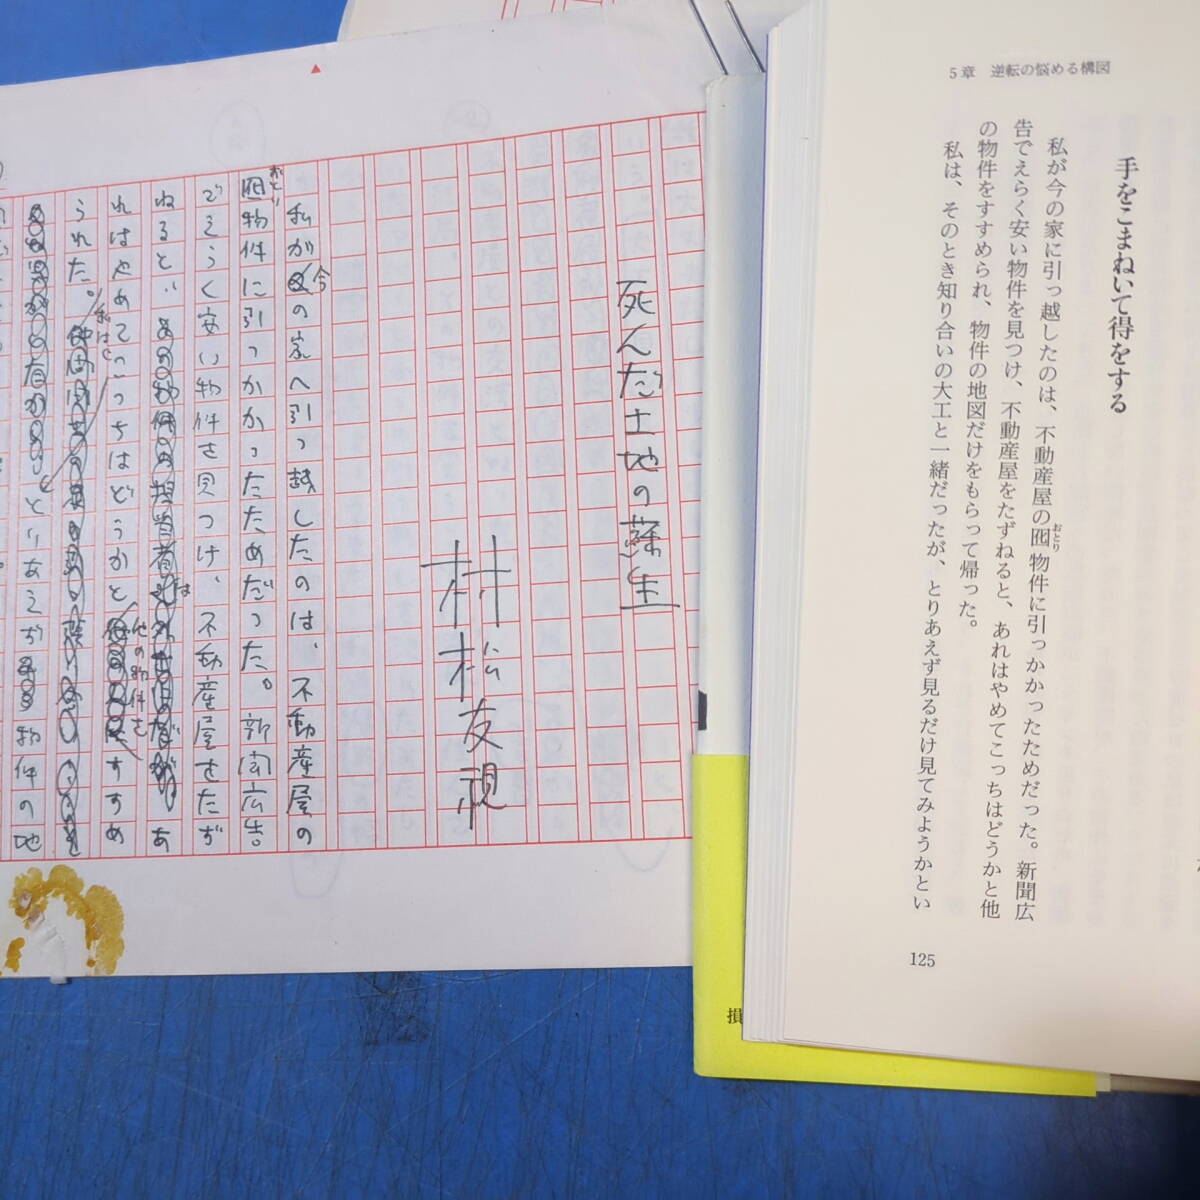 5章 逆転の悩める構図
手をこまねいて得をする
私が今の家に引っ越したのは、不動産屋の囮物件に引っかかったためだった。新聞広
おとり
告でえらく安い物件を見つけ、不動産屋をたずねると、あれはやめてこっちはどうかと他
の物件をすすめられ、物件の地図だけをもらって帰った。
私は、そのとき知り合いの大工と一緒だったが、とりあえず見るだけ見てみようかとい
125
損
死んだ土地の蘇生
村松友視
私が今の家へ引っ越したのは、不動産屋の
おとり
囮物件に引っかかったためだった。新聞広告。
でえらく安い物件を見つけ、不動産屋をたず
ねると、あ
れはやめてこっちはどうかと他の物件をすすめ
られた。私は
とりあえず物件の地